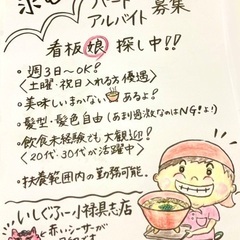 パート
アルバイト 募集
看板娘探し中!!
・週3日~OK!
<土曜・祝日入れる方優遇>
・美味しいまかない あるよ!
・髪型・髪色自由(あまり過激なのはNG!よ!)
・飲食未経験でも大歓迎!
<20代・30代が活躍中>
・扶養範囲内の勤務可能。
いしぐふー小禄具志店
赤いシーサーが